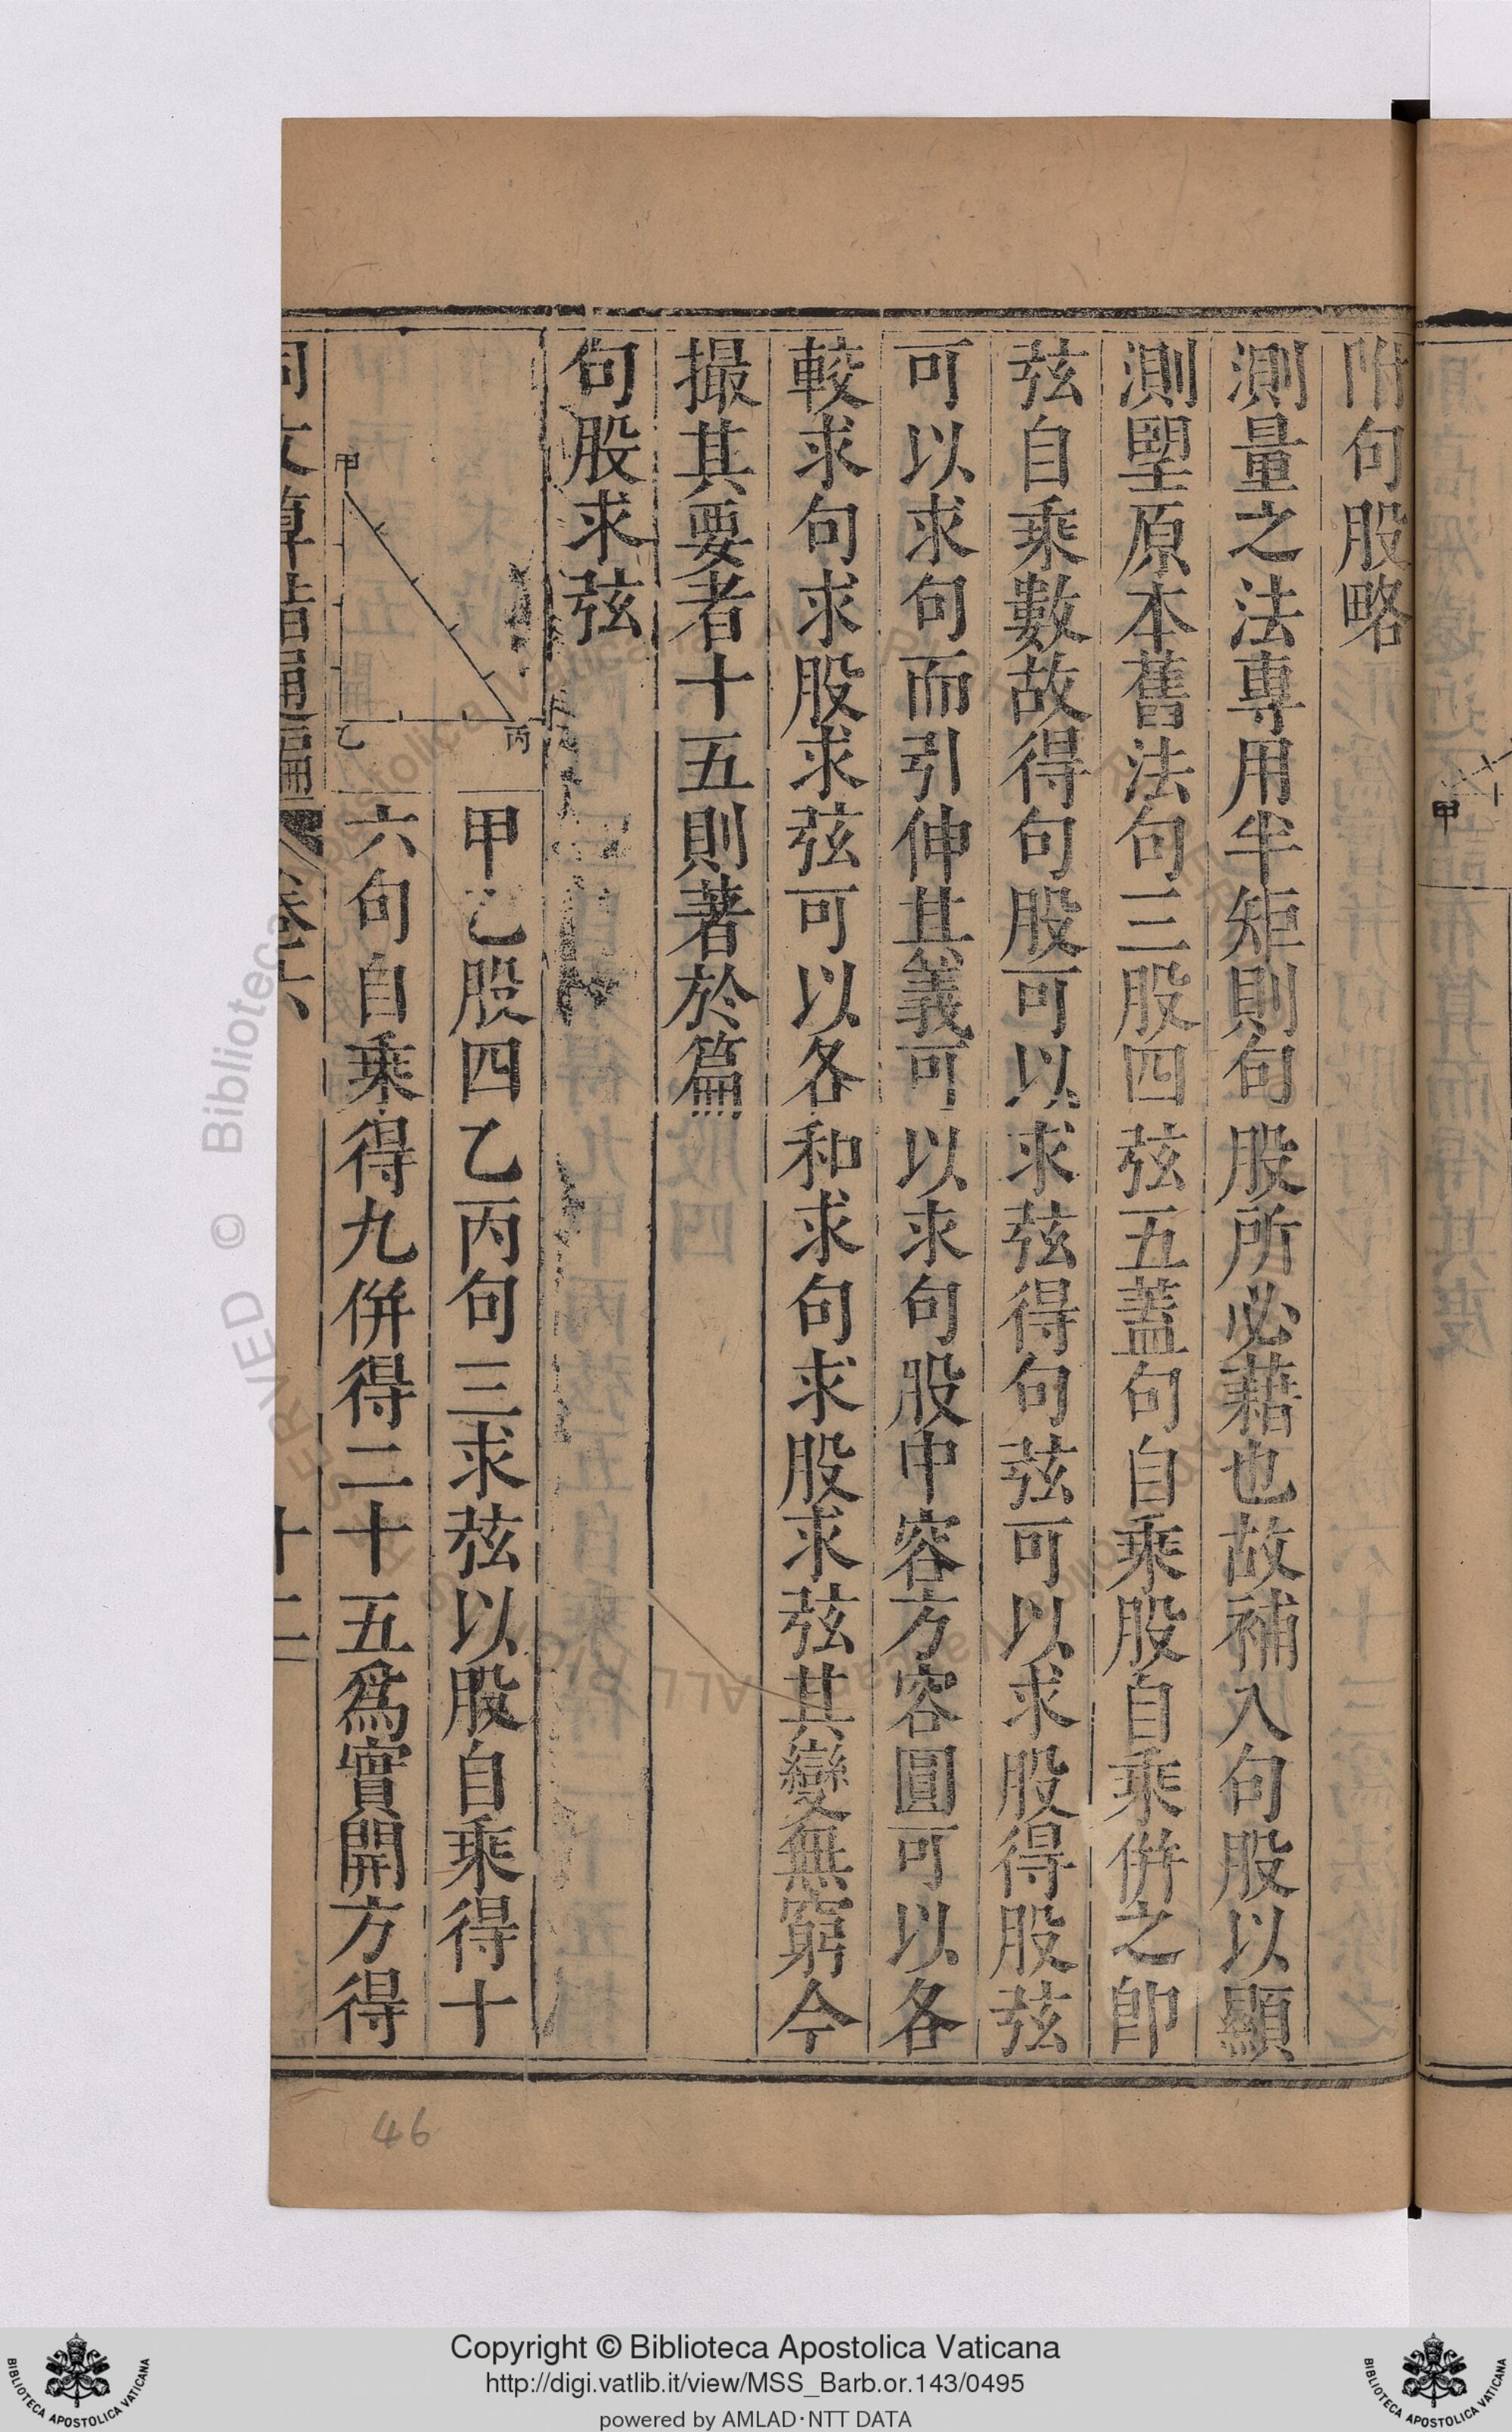 附句股略
測量之法專用半矩則句股所必藉也故補入句股以顯
測朢原本舊法句三股四弦五蓋句自乘股自乘併之卽
弦自乘數故得句股可以求弦得句弦可以求股得股弦
可以求句而引伸其義可以求句股中容方容圓可以各
較求句求股求弦可以各和求句求股求弦其變無窮今
撮其要者十五則著於篇
句股求弦
甲
乙
丙
甲乙股四乙丙句三求弦以股自乘得十
六句自乘得九併得二十五爲實開方得
同文算指通編
卷六
十二
甲
46
Copyright © Biblioteca Apostolica Vaticana
http://digi.vatlib.it/view/MSS_Barb.or.143/0495
powered by AMLAD·NTT DATA
BIBLIOTECA APOSTOLICA VATICANA
BIBLIOTECA APOSTOLICA VATICANA